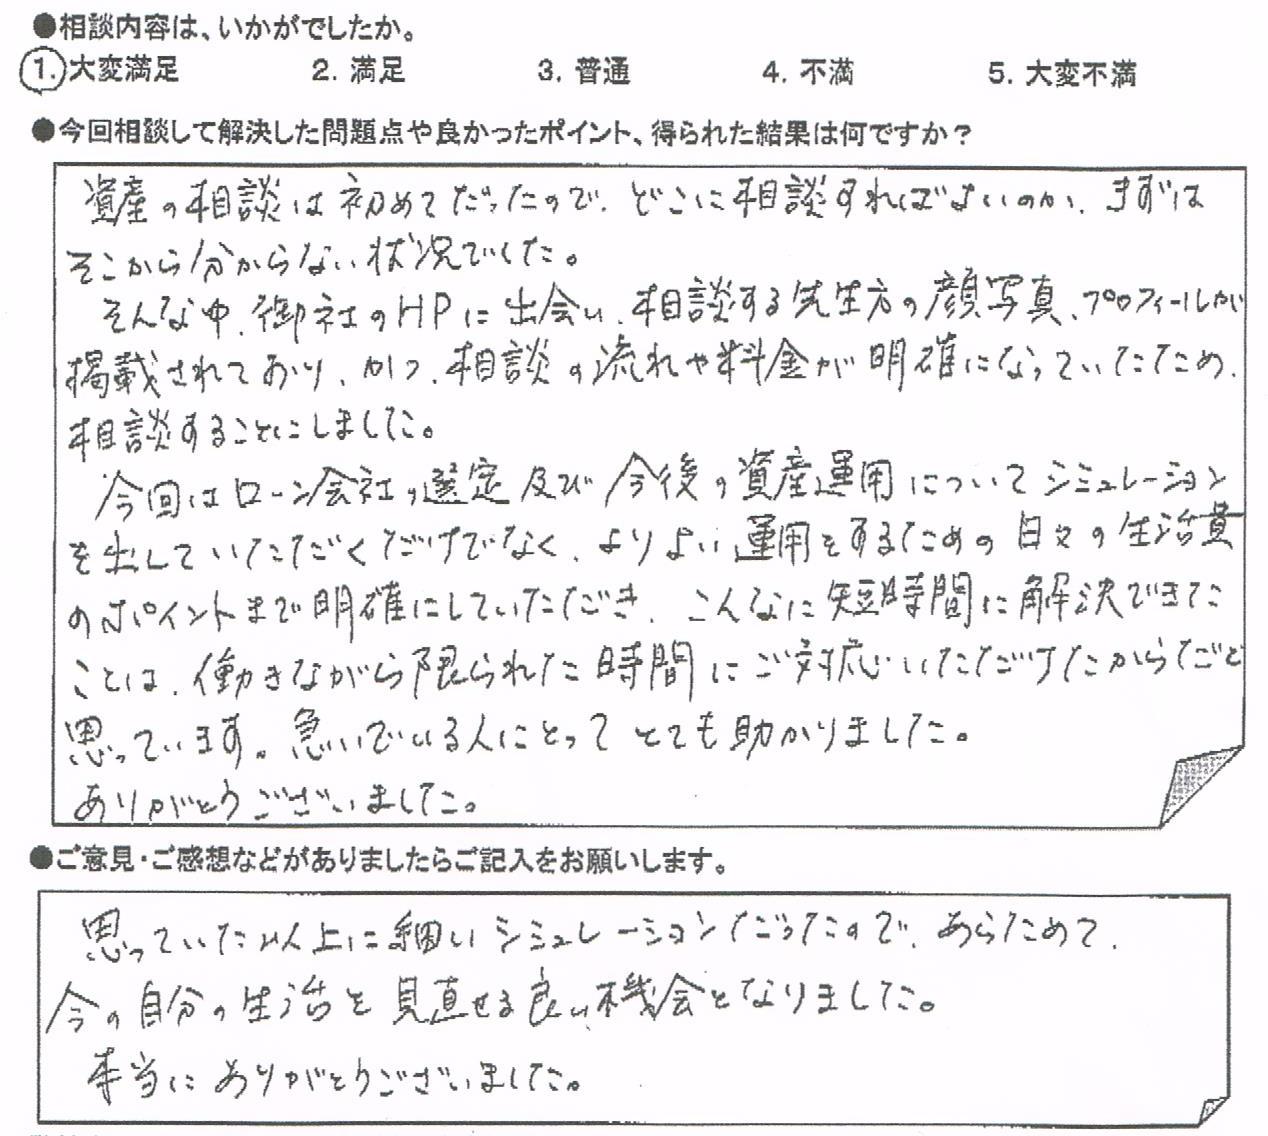 ●相談内容は、いかがでしたか。
1. 大変満足 2. 満足 3. 普通 4. 不満 5. 大変不満
●今回相談して解決した問題点や良かったポイント、得られた結果は何ですか？
資産の相談は初めてだったので、どこに相談すればよいのか、まずは
そこから分からない状況でした。
そんな中、御社のHPに出会い、相談する先生方の顔写真、プロフィールが
掲載されており、かつ、相談の流れや料金が明確になっていたため、
相談することにしました。
今回はローン会社の選定及び今後の資産運用についてシミュレーション
を出していただくだけでなく、よりよい運用をするための日々の生活費
のポイントまで明確にしていただき、こんなに短時間に解決できた
ことは、働きながら限られた時間にご対応いただけたからだと
思っています。急いでいる人にとってとても助かりました。
ありがとうございました。
●ご意見・ご感想などがありましたらご記入をお願いします。
思っていた以上に細いシミュレーションだったので、あらためて、
今の自分の生活を見直せる良い機会となりました。
本当にありがとうございました。